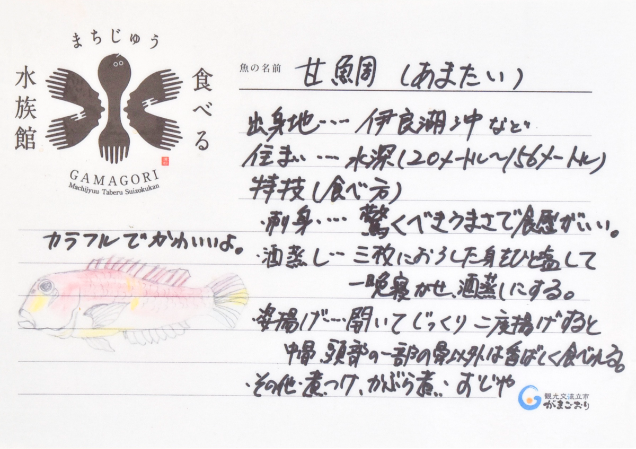 まちじゅう
食べる
水族館
GAMAGORI
Machijyuu Taberu Suizokukan
魚の名前 甘鯛 (あまたい)
出身地‥‥ 伊良湖沖など
住まい‥‥ 水深(120メートル~156メートル)
特技(食べ方)
・刺身‥‥ 驚くべきうまさで食感がいい。
カラフルでかわいいよ。
・酒蒸し‥ 三枚におろした身をひと塩して
一晩寝かせ、酒蒸しにする。
・姿揚げ‥‥開いてじっくり二度揚げすると
中骨、頭部の一部の骨以外は香ばしく食べれる。
・その他・煮つけ、かぶら煮‥おじや
観光交流立市
がまごおり